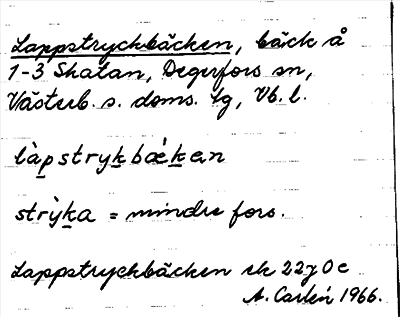 Lappstryckbäcken, bäck å
1-3 Skatan, Degerfors sn,
Västerb. s. doms. lg, Vb. l.
làpstrykbǽkan
strỳka = mindre fors.
Lappstryckbäcken ek 22J0c
A. Carlén 1966.